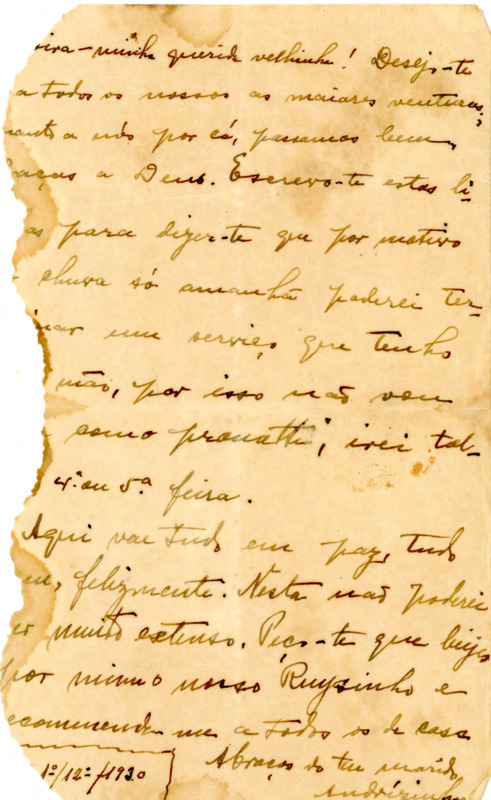 ira - minha querida velhinha! Desejo-te
a todos os nossos as maiores venturas;
uanto a nós por cá, passamos bem,
raças a Deus. Escrevo-te estas li-
as para dizer-te que por motivo
chuva só amanhã poderei ter-
inar um serviço que tenho
mão, por isso não vou
como promatti, irei tal-
4ª ou 5ª feira.
Aqui vae tudo em paz, tudo
m, felizmente. Nesta não poderei
er muito extenso. Peço-te que beijes
por mim o nosso Ruysinho e
ecommenda-me a todos os de casa
Abraços do teu marido
Andrézinho
1º/12º/1930